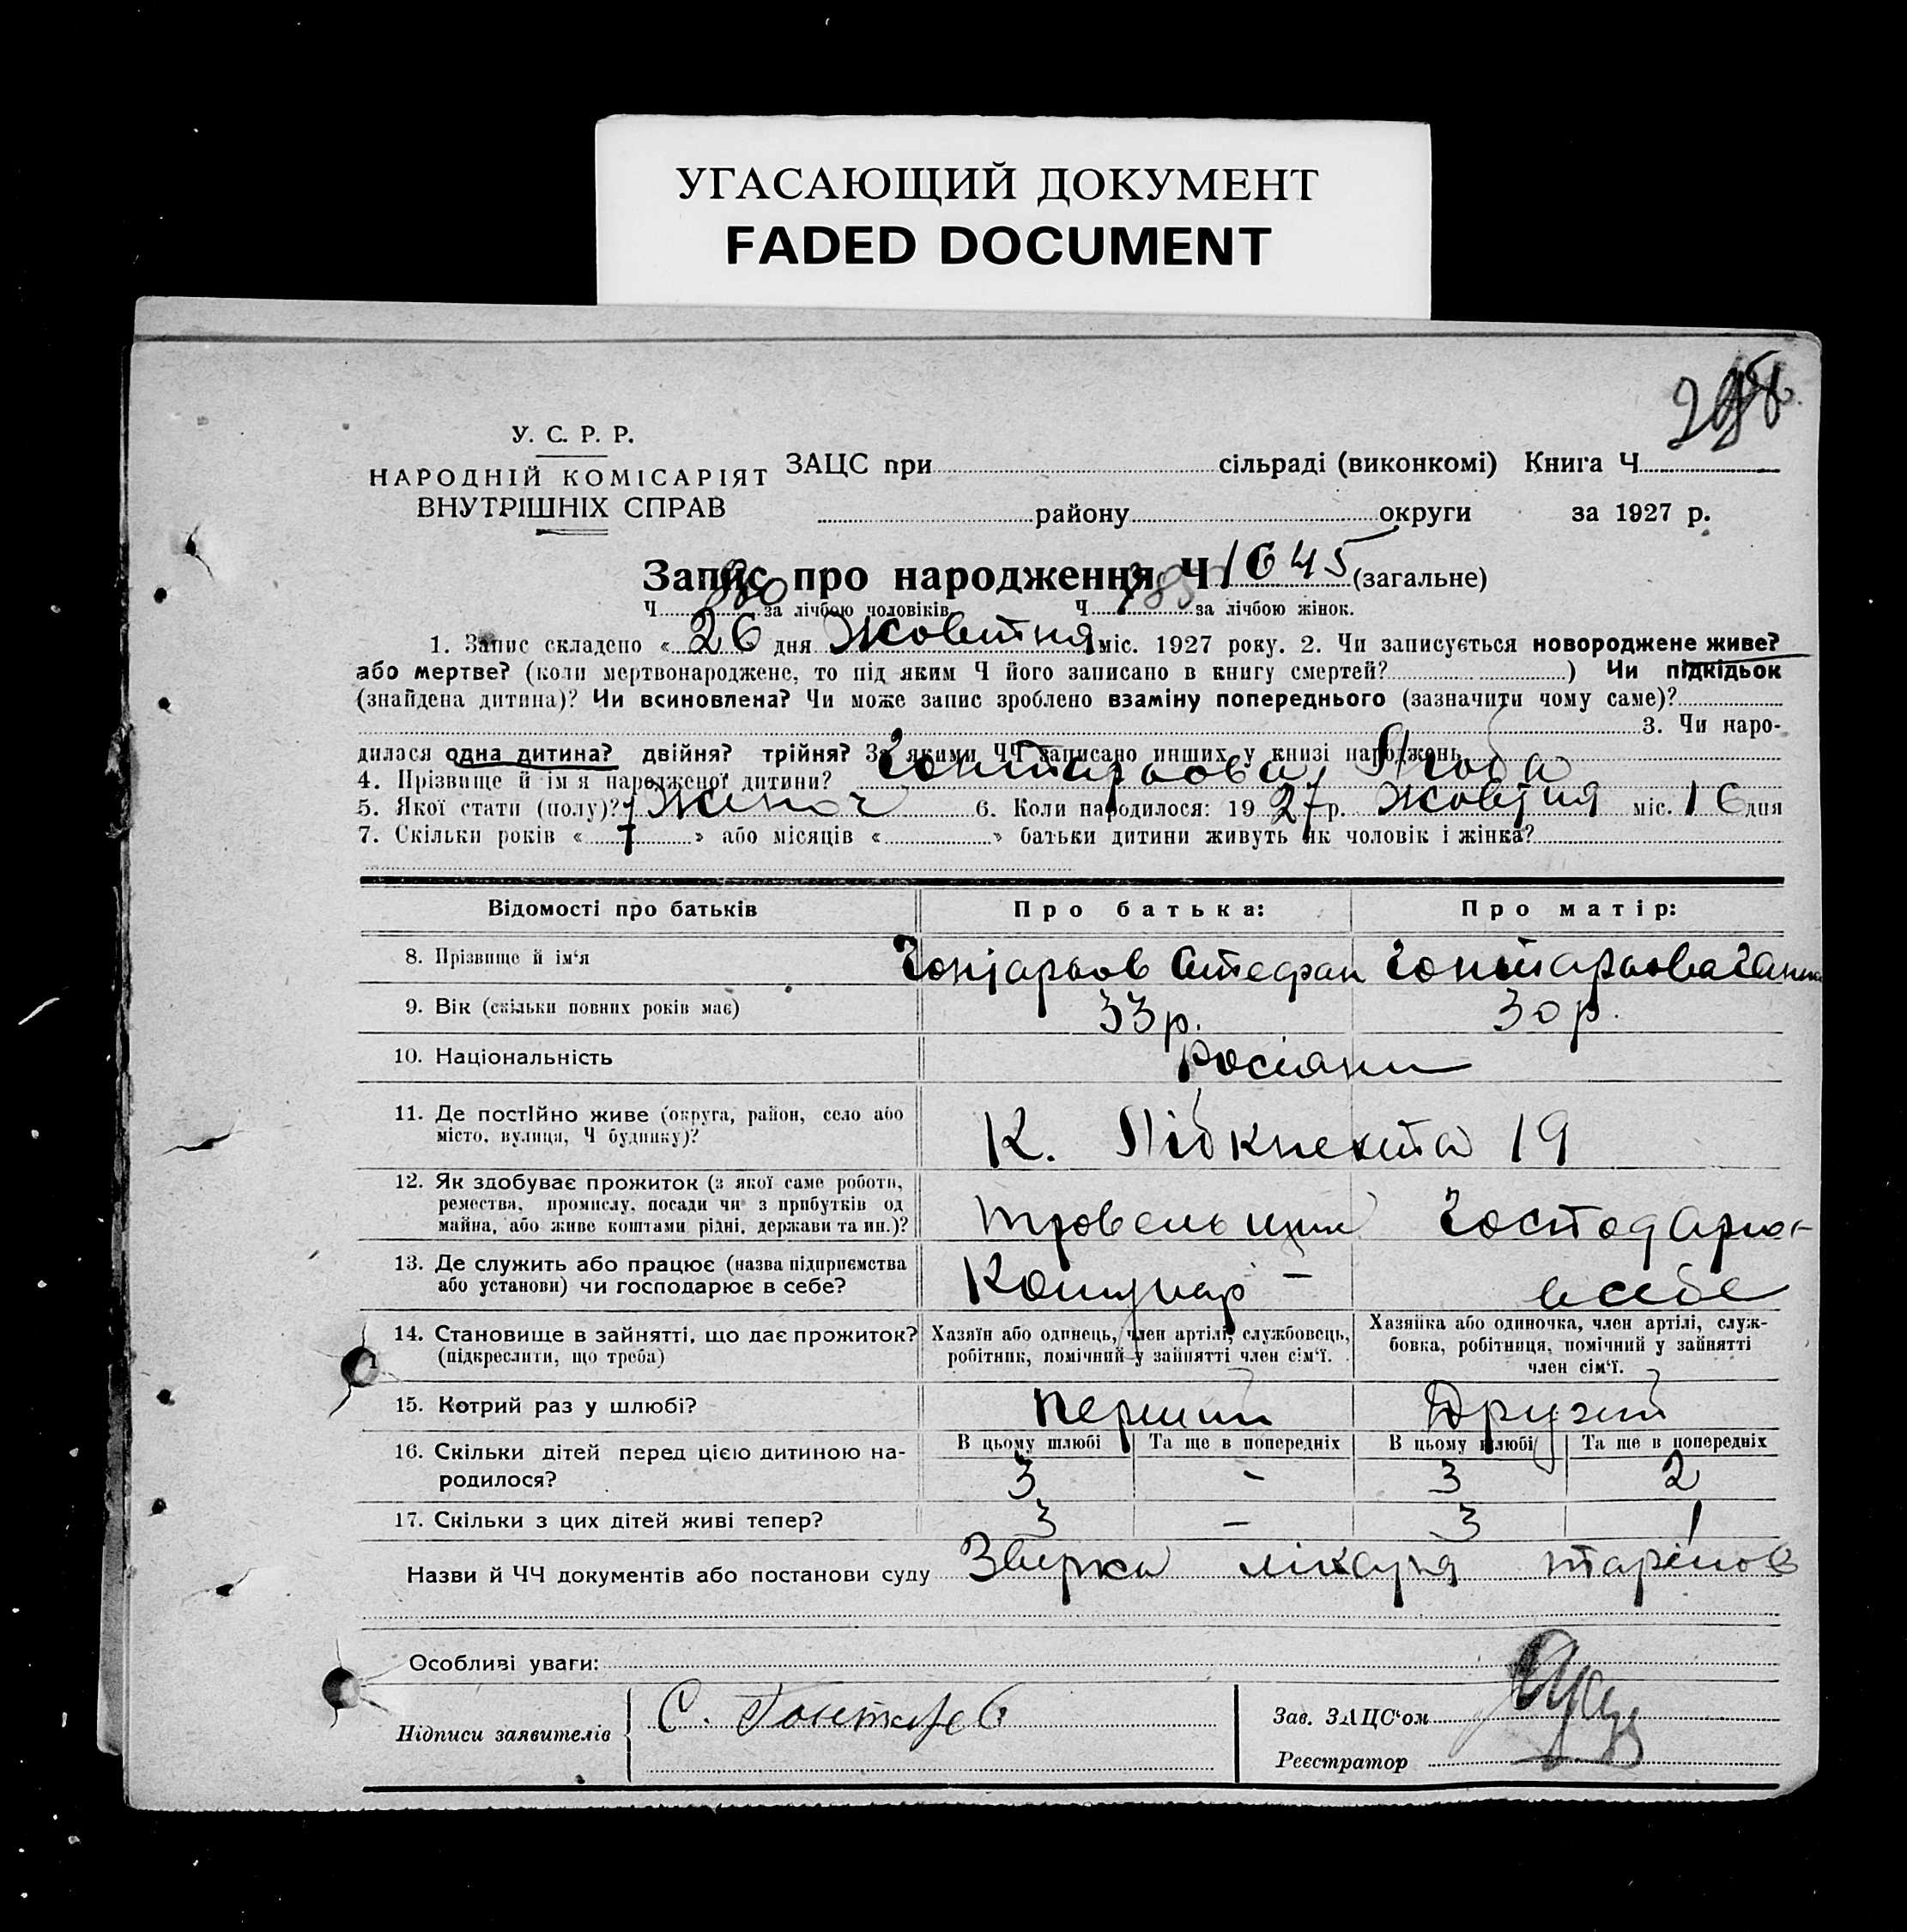 УГАСАЮЩИЙ ДОКУМЕНТ
FADED DOCUMENT
У. С. Р. Р.
НАРОДНІЙ КОМІСАРІЯТ
ВНУТРІШНІХ СПРАВ
ЗАЦС при сільраді (виконкомі) Книга Ч
району округи за 1927 р.
Запис про народження Ч 1645 (загальне)
Ч за лічбою чоловіків Ч 785 за лічбою жінок.
1. Запис складено « 26 дня Жовтня міс. 1927 року. 2. Чи записується новороджене живе?
або мертве? (коли мертвонароджене, то під яким Ч його записано в книгу смертей? ) Чи підкідьок
(знайдена дитина)? Чи всиновлена? Чи може запис зроблено взаміну попереднього (зазначити чому саме)?
3. Чи наро-
дилася одна дитина? двійня? трійня? За якими ЧЧ записано инших у книзі народжень
4. Прізвище й ім'я народженої дитини? Гонтарьова, Люба
5. Якої стати (полу)? Жіноч 6. Коли народилося: 1927 р. Жовтня міс. 16 дня
7. Скільки років « 7 » або місяців « » батьки дитини живуть як чоловік і жінка?
Відомості про батьків Про батька: Про матір:
8. Прізвище й ім'я Гонтарьов Стефан Гонтарьова Ганна
9. Вік (скільки повних років має) 33 р. 30 р.
10. Національність Росіяни
11. Де постійно живе (округа, район, село або
місто, вулиця, Ч будинку)? К. Лібкнехта 19
12. Як здобуває прожиток (з якої саме роботи,
ремества, промислу, посади чи з прибутків од
майна, або живе коштами рідні, держави та ин.)? Господарює
13. Де служить або працює (назва підприємства
або установи) чи господарює в себе? в себе
14. Становище в зайнятті, що дає прожиток?
(підкреслити, що треба)
Хазяїн або одинець, член артілі, службовець,
робітник, помічний у зайнятті член сім'ї.
Хазяйка або одиночка, член артілі, служ-
бовка, робітниця, помічний у зайнятті
член сім'ї.
15. Котрий раз у шлюбі? Перший Другий
16. Скільки дітей перед цією дитиною на-
родилося?
В цьому шлюбі Та ще в попередніх В цьому шлюбі Та ще в попередніх
3 - 3 2
17. Скільки з цих дітей живі тепер? 3 - 3 1
Назви й ЧЧ документів або постанови суду лікаря
Особливі уваги:
Підписи заявителів С. Гонтарев
Зав. ЗАЦС'ом
Реєстратор